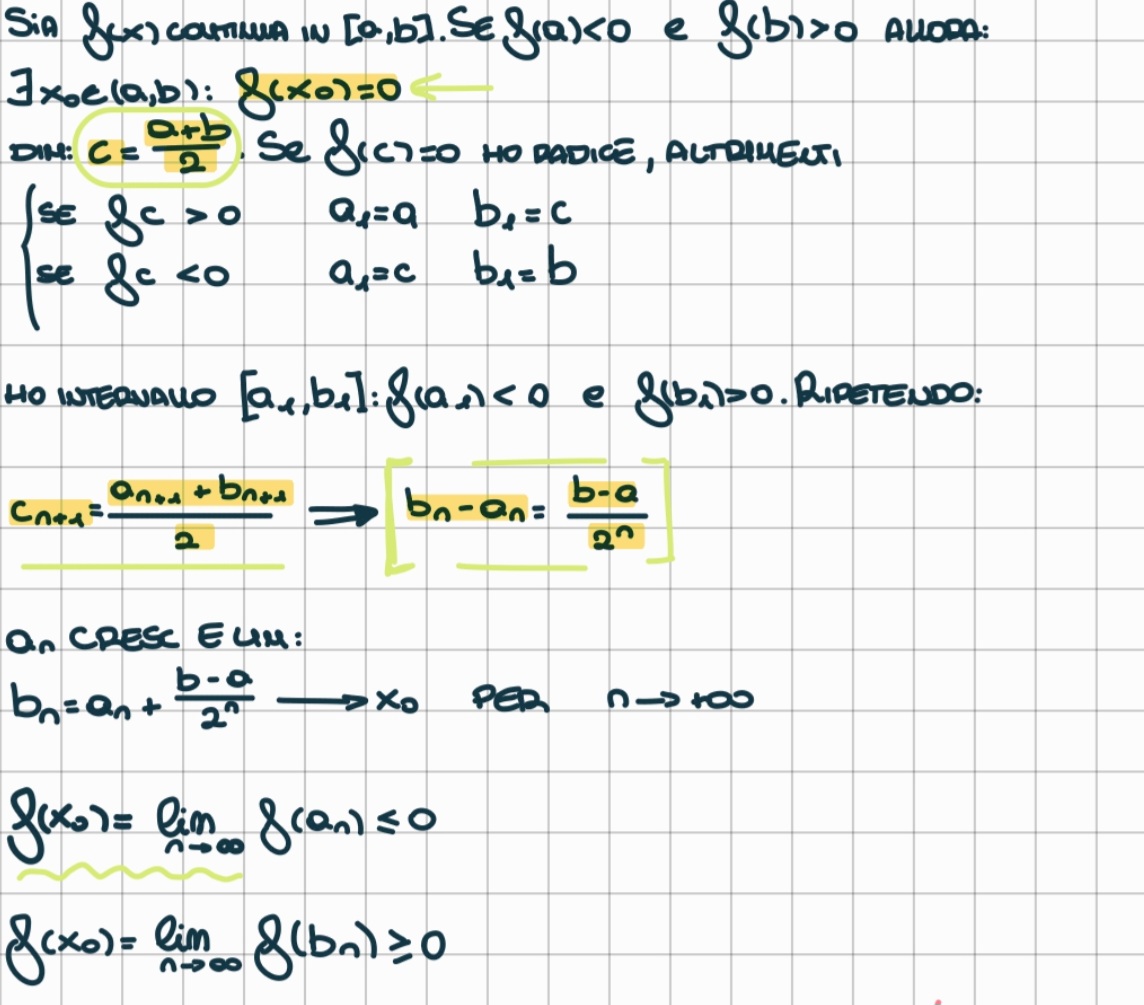 SIA f(x) CONTINUA IN [a,b]. SE f(a)<0 e f(b)>0 ALLORA:
∃x₀∈(a,b): f(x₀)=0 ←
DIM: c = (a+b)/2. Se f(c)=0 HO RADICE, ALTRIMENTI
{ SE fc >0 a₁=a b₁=c
SE fc <0 a₁=c b₁=b
HO INTERVALLO [a₁,b₁]: f(a₁)<0 e f(b₁)>0. RIPETENDO:
cₙ₊₁ = (aₙ₊₁ + bₙ₊₁)/2 → [bₙ-aₙ = (b-a)/2ⁿ]
aₙ CRESC E LIM:
bₙ = aₙ + (b-a)/2ⁿ → x₀ PER n→+∞
f(x₀) = lim n→∞ f(aₙ) ≤ 0
f(x₀) = lim n→∞ f(bₙ) ≥ 0